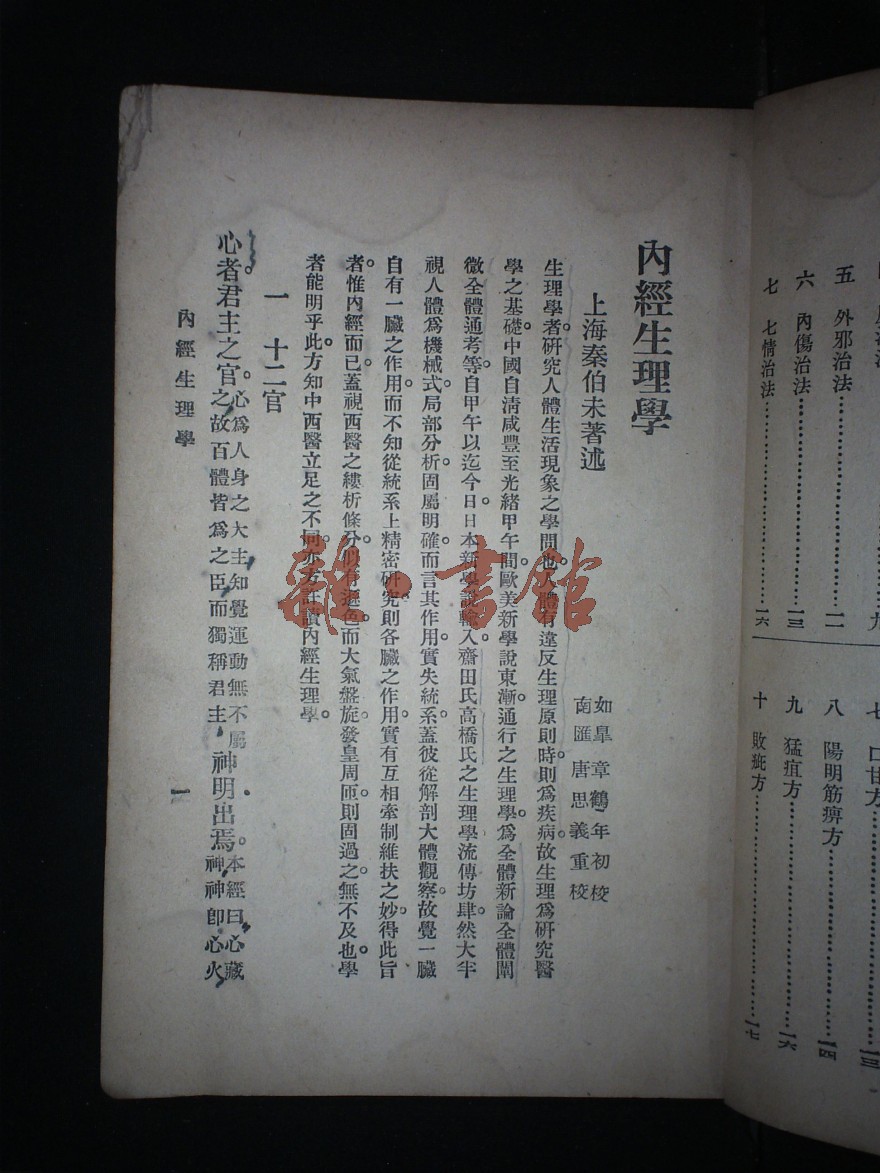 五 外邪治法………………一二
六 內傷治法………………一三
七 七情治法………………一六
七 口甘方………………一三
八 陽明筋痹方………………一四
九 猛疽方………………一六
十 敗疵方………………一七
內經生理學
上海秦伯未著述
如皐章鶴年初校
南匯唐思義重校
生理學者。研究人體生活現象之學問也。人體有違反生理原則時。則爲疾病。故生理爲研究醫
學之基礎。中國自清咸豐至光緒甲午間。歐美新學說東漸。通行之生理學。爲全體新論全體闡
微全體通考等。自甲午以迄今日。日本新學說輸入。齋田氏高橋氏之生理學流傳坊肆。然大半
視人體爲機械式。局部分析。固屬明確。而言其作用。實失統系。蓋彼從解剖大體觀察。故覺一臟
自有一臟之作用。而不知從統系上精密研究。則各臟之作用。實有互相牽制維扶之妙。得此旨
者。惟內經而已。蓋視西醫之縷析條分。似有遜色。而大氣盤旋。發皇周匝。則固過之。無不及也。學
者能明乎此。方知中西醫立足之不同。亦方許讀內經生理學。
一 十二官
心者。君主之官。心爲人身之大主知覺運動無不屬之故百體皆爲之臣而獨稱君主 神明出焉。本經曰心藏神神卽心火
內經生理學 一
雜·書館